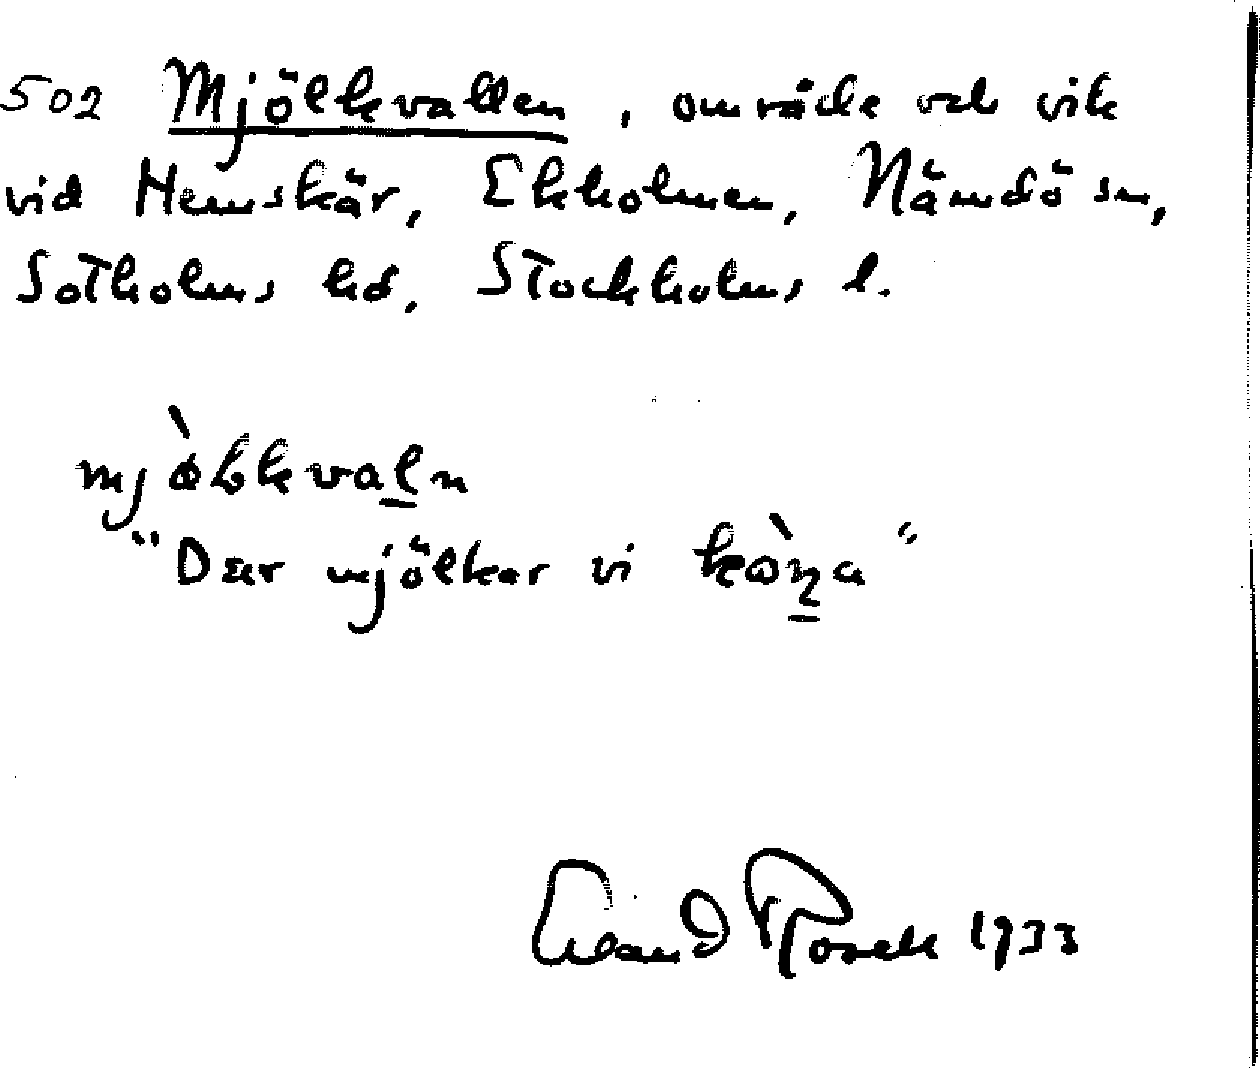 502 Mjölkvallen, område och vik
vid Hemskär, Ekholmen, Nämdö sn,
Sotholms hd, Stockholms l.
mjòlkvaln
"Där mjölkar vi kòna"
Erland Rosell 1933